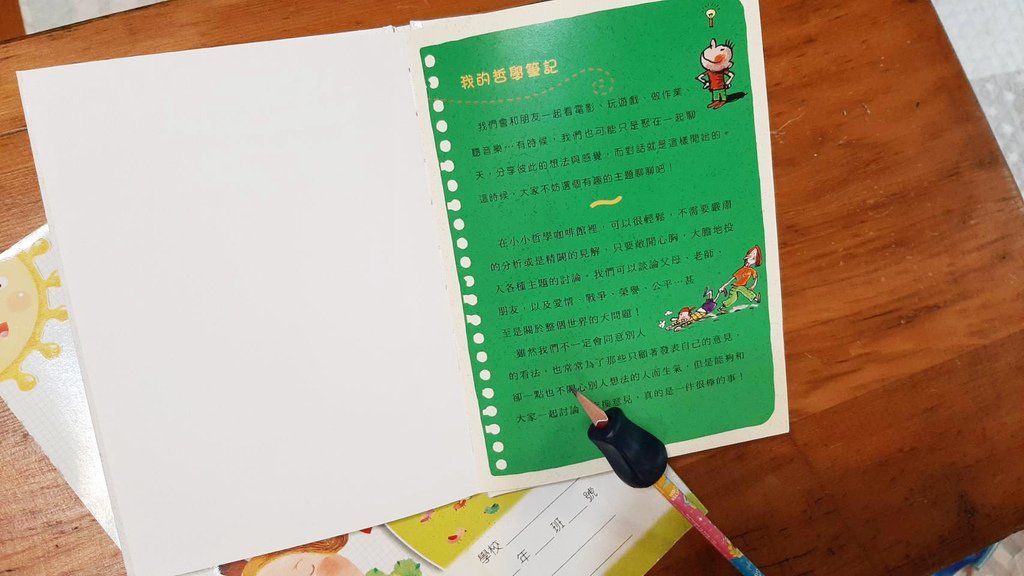 我的哲學筆記
我們會和朋友一起看電影、玩遊戲、做作業、
聽音樂…有時候，我們也可能只是聚在一起聊
天，分享彼此的想法與感覺，而對話就是這樣開始的。
這時候，大家不妨選個有趣的主題聊聊吧！
在小小哲學咖啡館裡，可以很輕鬆，不需要嚴肅
的分析或是精闢的見解，只要敞開心胸，大膽地投
入各種主題的討論，我們可以談論父母、老師、
朋友，以及愛情、戰爭、榮譽、公平…甚
至是關於整個世界的大問題！
雖然我們不一定會同意別人
的看法，也常常為了那些只顧著發表自己的意見
卻一點也不關心別人想法的人而生氣，但是能夠和
大家一起討論 意見，真的是一件很棒的事！
學校
年 班 號